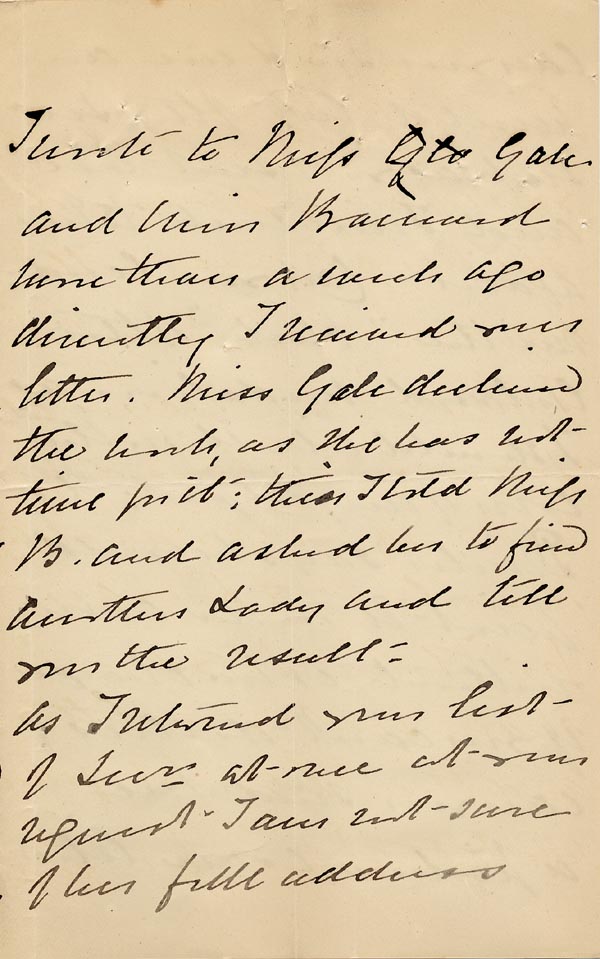 I wrote to Miss Gale
and Miss Barnard
more than a week ago
directly I received your
letter. Miss Gale declined
the work, as she has not
time for it; this I told Miss
B. and asked her to find
another Lady and tell
you the result -
as I returned your list
of Secrs at once at your
request I am not sure
of her full address